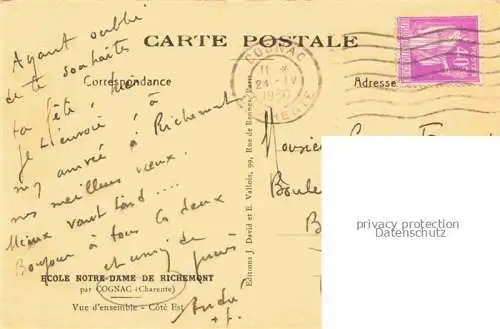 CARTE POSTALE
Correspondance
Adresse
COGNAC
CHARENTE
Ayant oublié
de te souhaiter
ta fête,
je t'envoie à
mon arrivée à Richemont
nos meilleurs vœux.
Mieux vaut tard ....
Bonjour à tous les deux
et amis de
André
Monsieur
Editions J. David et E. Vallois, 99, Rue de Rennes, Paris
ECOLE NOTRE-DAME DE RICHEMONT
par COGNAC (Charente)
Vue d'ensemble - Côté Est
privacy protection
Datenschutz